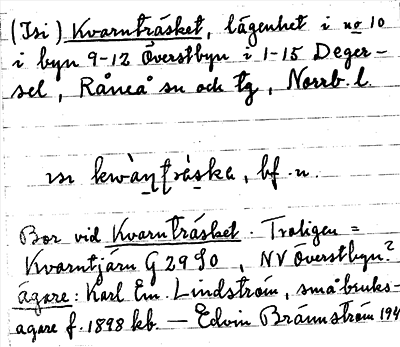 (Isi) Kvarnträsket, lägenhet i no 10
i byn 9-12 Överstbyn i 1-15 Deger-
sel, Råneå sn och tg, Norrb. l.
ısı kwàṇṭràska, bf. n.
Bor vid Kvarnträsket. Troligen =
Kvarntjärn G 29 S0, NV Överstbyn?
ägare: Karl Em. Lindström, småbruks-
ägare f. 1898 kb. — Edvin Brännström 194